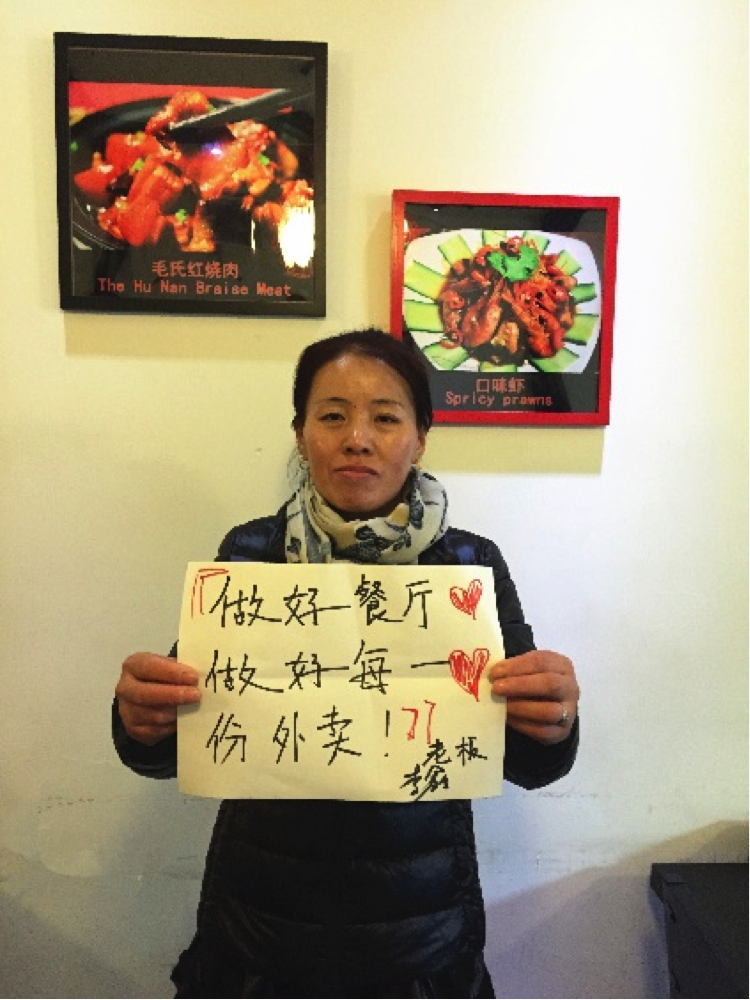 毛氏红烧肉
The Hu Nan Braise Meat
口味虾
Spricy prawns
『做好餐厅
做好每一
份外卖！』
老板